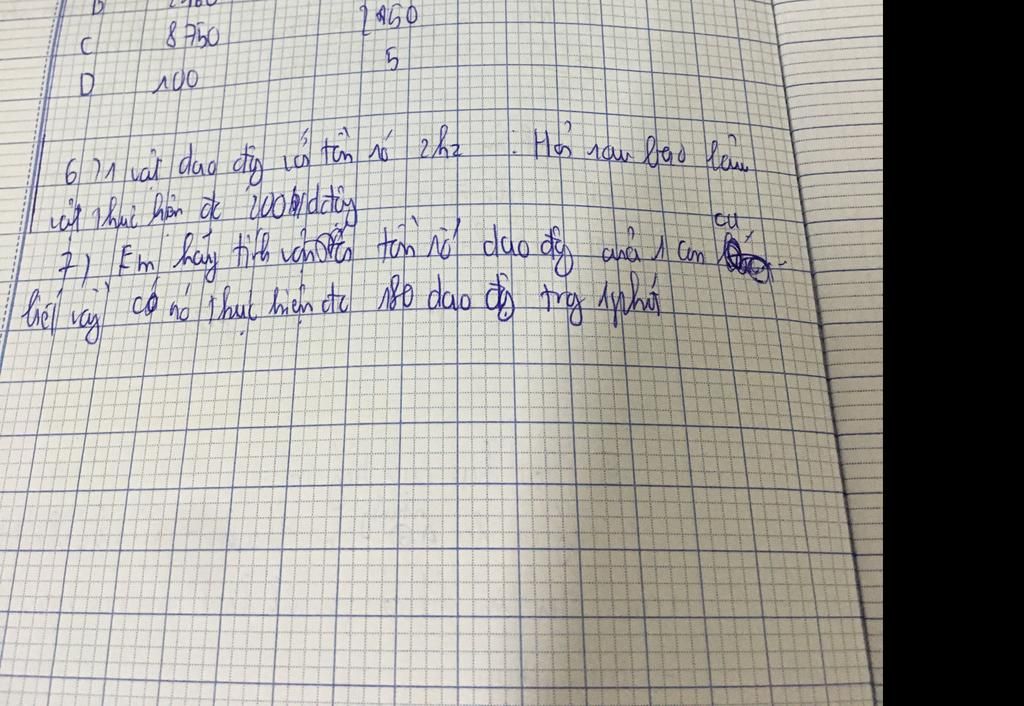 C 8750 2150
D 100 5
6) 1 vật dao độg có tần số 2hz : Hỏi sau bao lâu
vật thực hiện đc 200 d độg
7) Em hãy tính tần số dao độg của 1 con cú
biết vảy có nó thực hiện đc 180 dao độ trg 1 phút